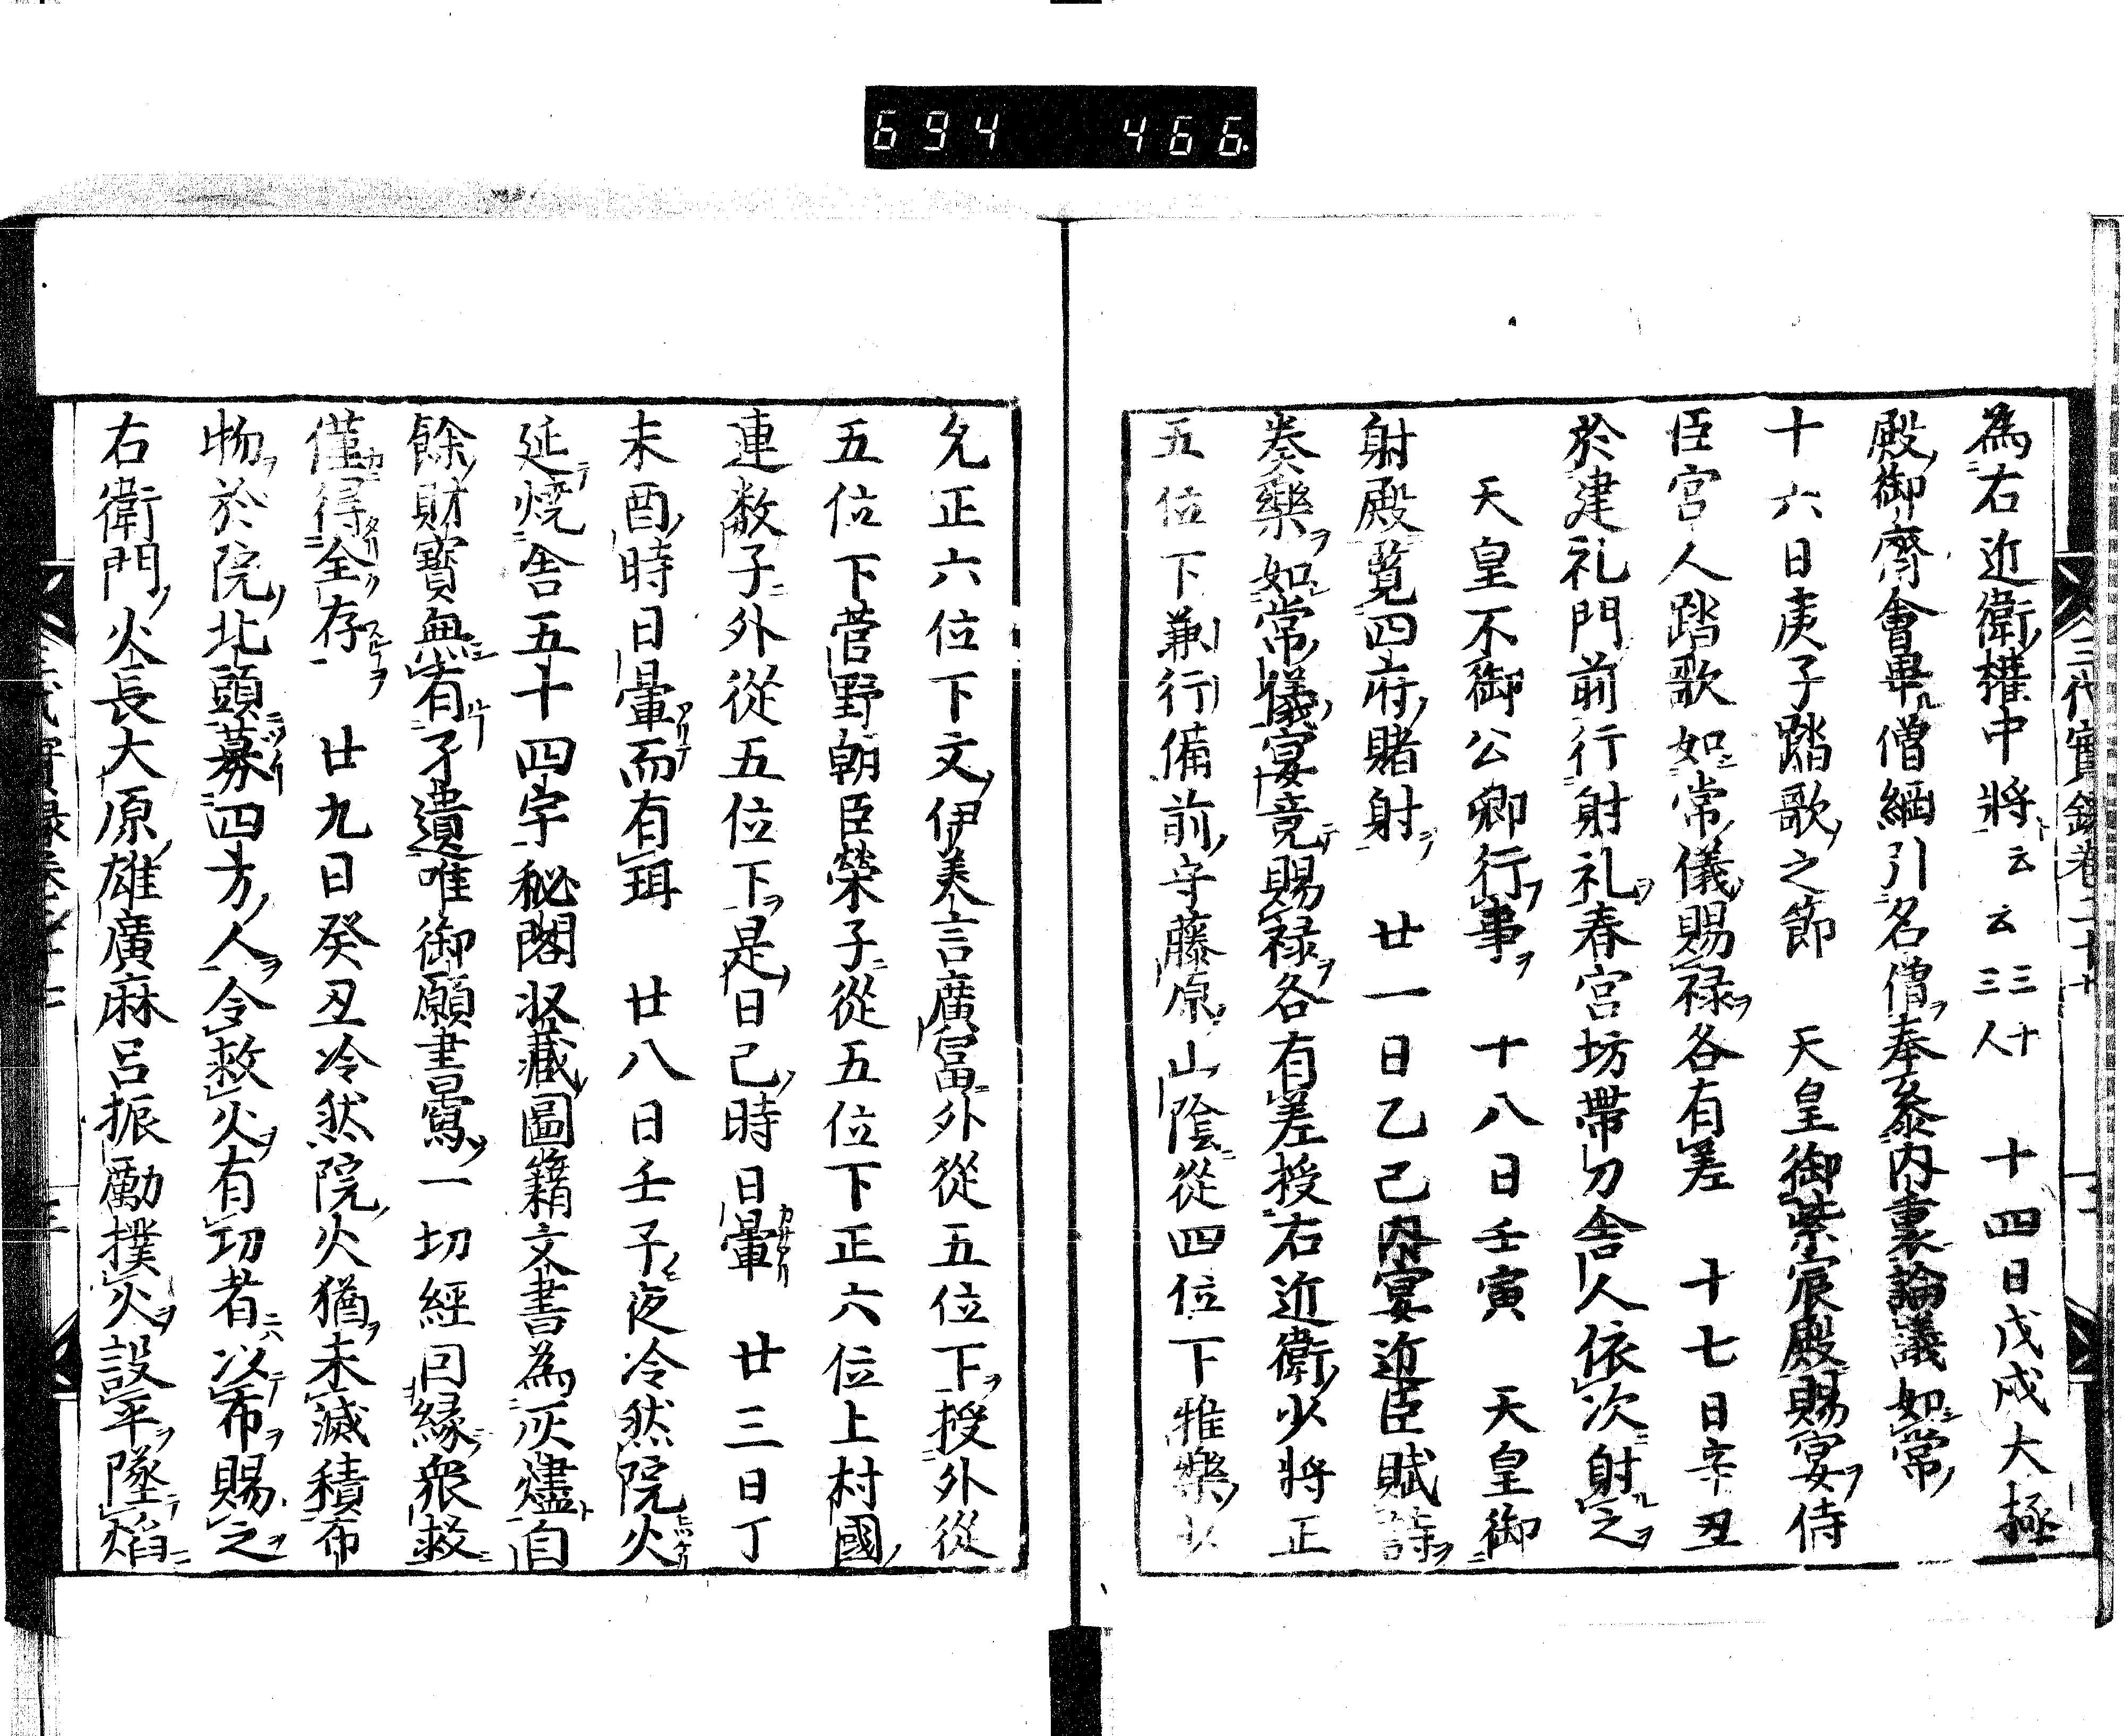 694 466
為右近衛權中将云云三十三人 十四日戊戌大極
殿御齋會畢僧綱引名僧奉參内裏論議如常
十六日庚子踏歌之節 天皇御紫宸殿賜宴侍
臣宮人踏歌如常儀賜禄各有差 十七日辛丑
於建礼門前行射礼春宮坊帶刀舎人依次射之
天皇不御公卿行事 十八日壬寅 天皇御
射殿覧四府賭射 廿一日乙己内宴近臣賦詩
奏樂如常儀宴竟賜禄各有差授右近衛少将正
五位下兼行備前守藤原山陰從四位下雅樂
允正六位下文伊美吉廣冨外從五位下授外從
五位下菅野朝臣榮子從五位下正六位上村國
連数子外從五位下是日己時日暈 廿三日丁
未酉時日暈而有珥 廿八日壬子夜冷然院火
延焼舎五十四宇秘閣収藏圖籍文書為灰燼自
餘財寶無有孑遺唯御願書寫一切經因縁衆救
僅得全存 廿九日癸丑冷然院火猶未滅積布
物於院北頭募四方人令救火有切者以布賜之
右衛門火長大原雄廣麻呂振勵撲火設平墜焰